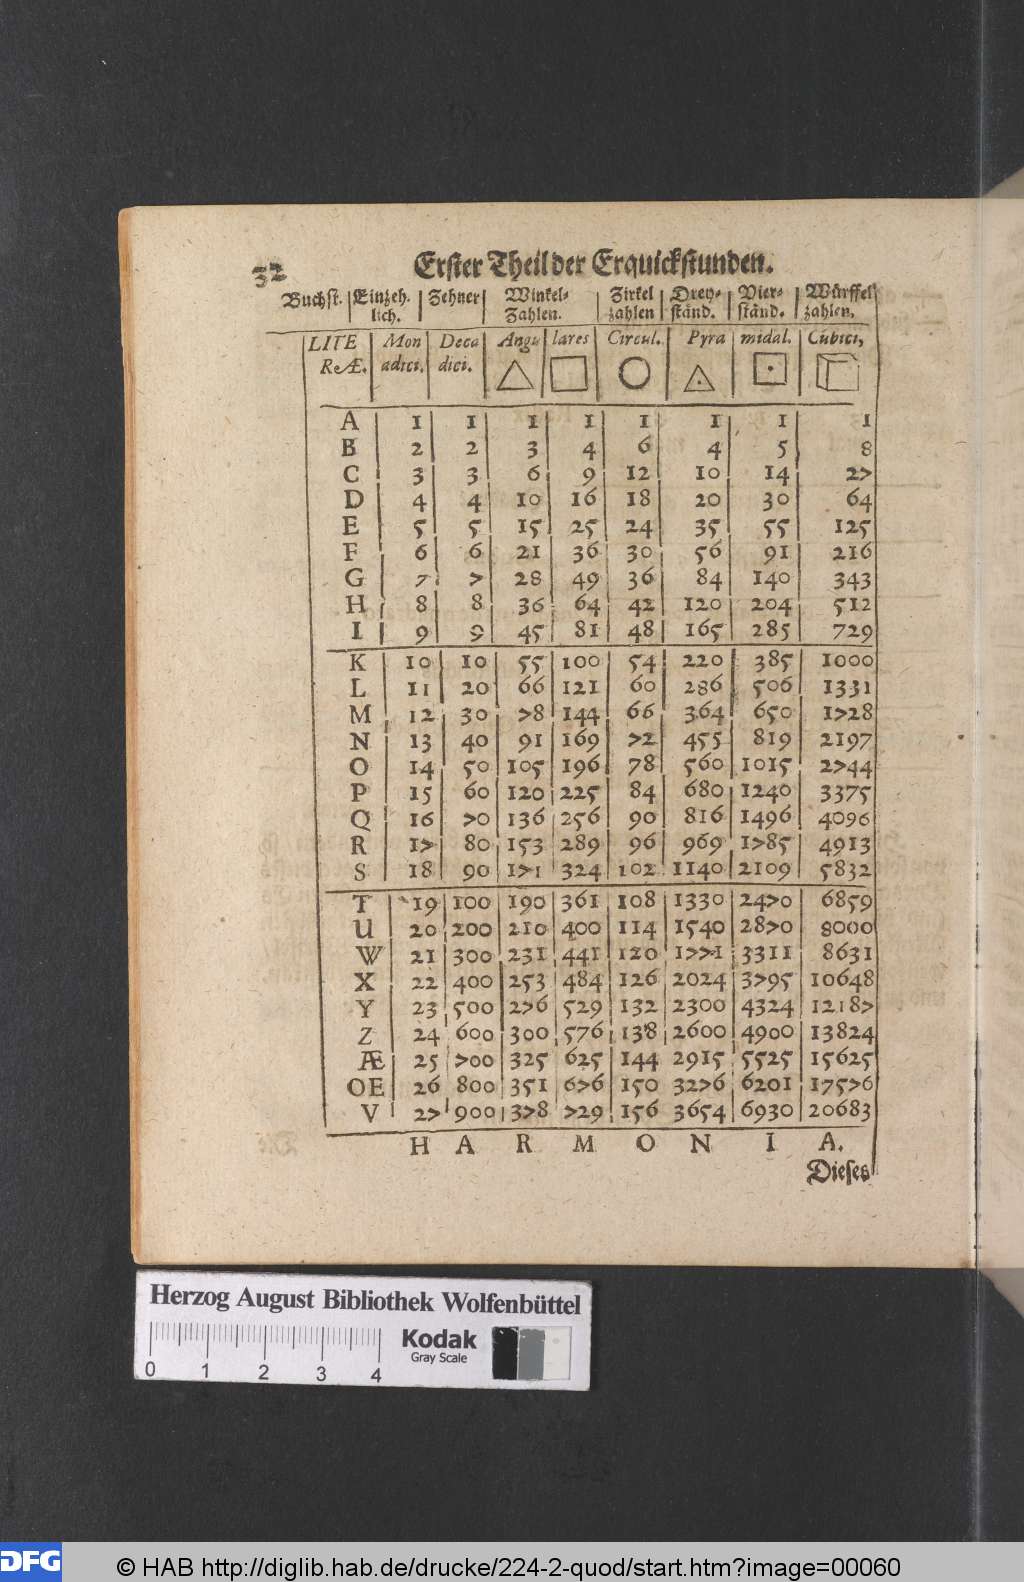 32 Erster Theil der Erquickstunden.
Buchst. Einzeh. Zehner Winkel- Zirkel Drey- Vier- Würffel
lich. Zahlen. zahlen ständ. ständ. zahlen.
LITE Mon Deca Angu lares Circul. Pyra midal. Cubici,
RÆ. adici. dici.
A 1 1 1 1 1 1 1 1
B 2 2 3 4 6 4 5 8
C 3 3 6 9 12 10 14 27
D 4 4 10 16 18 20 30 64
E 5 5 15 25 24 35 55 125
F 6 6 21 36 30 56 91 216
G 7 7 28 49 36 84 140 343
H 8 8 36 64 42 120 204 512
I 9 9 45 81 48 165 285 729
K 10 10 55 100 54 220 385 1000
L 11 20 66 121 60 286 506 1331
M 12 30 78 144 66 364 650 1728
N 13 40 91 169 72 455 819 2197
O 14 50 105 196 78 560 1015 2744
P 15 60 120 225 84 680 1240 3375
Q 16 70 136 256 90 816 1496 4096
R 17 80 153 289 96 969 1785 4913
S 18 90 171 324 102 1140 2109 5832
T 19 100 190 361 108 1330 2470 6859
U 20 200 210 400 114 1540 2870 8000
W 21 300 231 441 120 1771 3311 8631
X 22 400 253 484 126 2024 3795 10648
Y 23 500 276 529 132 2300 4324 12187
Z 24 600 300 576 138 2600 4900 13824
Æ 25 700 325 625 144 2915 5525 15625
OE 26 800 351 676 150 3276 6201 17576
V 27 900 378 729 156 3654 6930 20683
H A R M O N I A.
Dieses
Herzog August Bibliothek Wolfenbüttel
Kodak
Gray Scale
0 1 2 3 4
DFG © HAB http://diglib.hab.de/drucke/224-2-quod/start.htm?image=00060